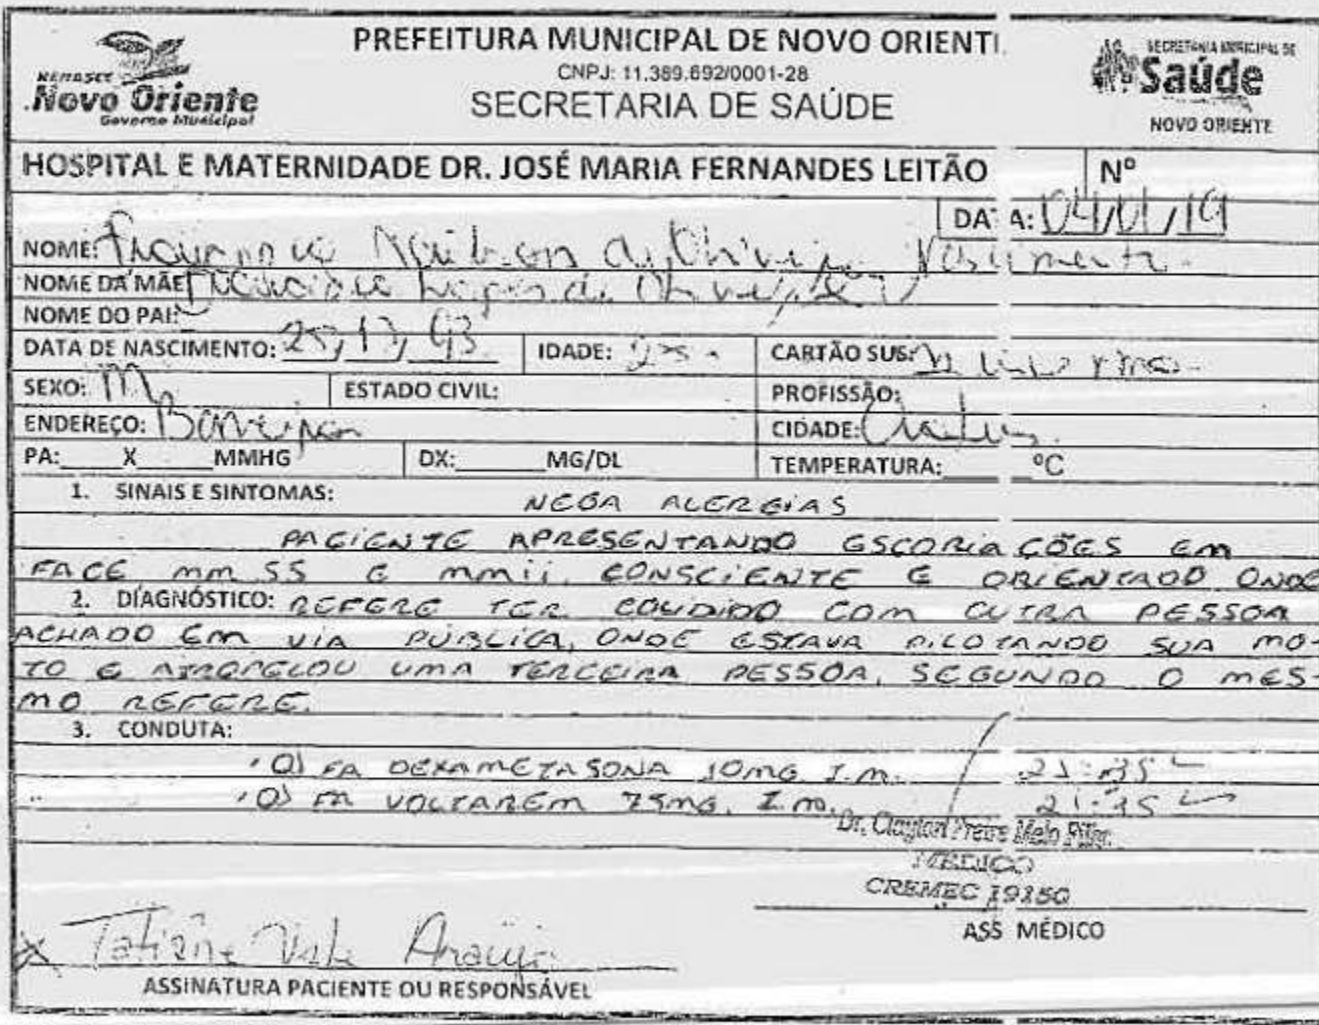 RENASCE
Novo Oriente
Governo Municipal
PREFEITURA MUNICIPAL DE NOVO ORIENT
CNPJ: 11.389.692/0001-28
SECRETARIA DE SAÚDE
SECRETARIA MUNICIPAL DE
Saúde
NOVO ORIENTE
HOSPITAL E MATERNIDADE DR. JOSÉ MARIA FERNANDES LEITÃO Nº
DATA: 04/01/19
NOME: Nascimento
NOME DA MÃE: Lopes de Oliveira
NOME DO PAI:
DATA DE NASCIMENTO: IDADE: 25 CARTÃO SUS:
SEXO: M ESTADO CIVIL: PROFISSÃO:
ENDEREÇO: CIDADE:
PA: X MMHG DX: MG/DL TEMPERATURA: ºC
1. SINAIS E SINTOMAS: NEGA ALERGIAS
PACIENTE APRESENTANDO ESCORIAÇÕES EM
FACE MMSS E MMII. CONSCIENTE E ORIENTADO ONDE
2. DIAGNÓSTICO: REFERE TER COLIDIDO COM OUTRA PESSOA
ACHADO EM VIA PÚBLICA, ONDE ESTAVA PILOTANDO SUA MO-
TO E ATROPELOU UMA TERCEIRA PESSOA, SEGUNDO O MES-
MO REFERE.
3. CONDUTA:
FA DEXAMETASONA 10MG I.M. 21:35
FA VOLTAREM 75MG. I.M. 21:35
Dr. Clayton Freire Melo
MÉDICO
CREMEC 19150
ASS MÉDICO
X Tatiane Vale Araújo
ASSINATURA PACIENTE OU RESPONSÁVEL